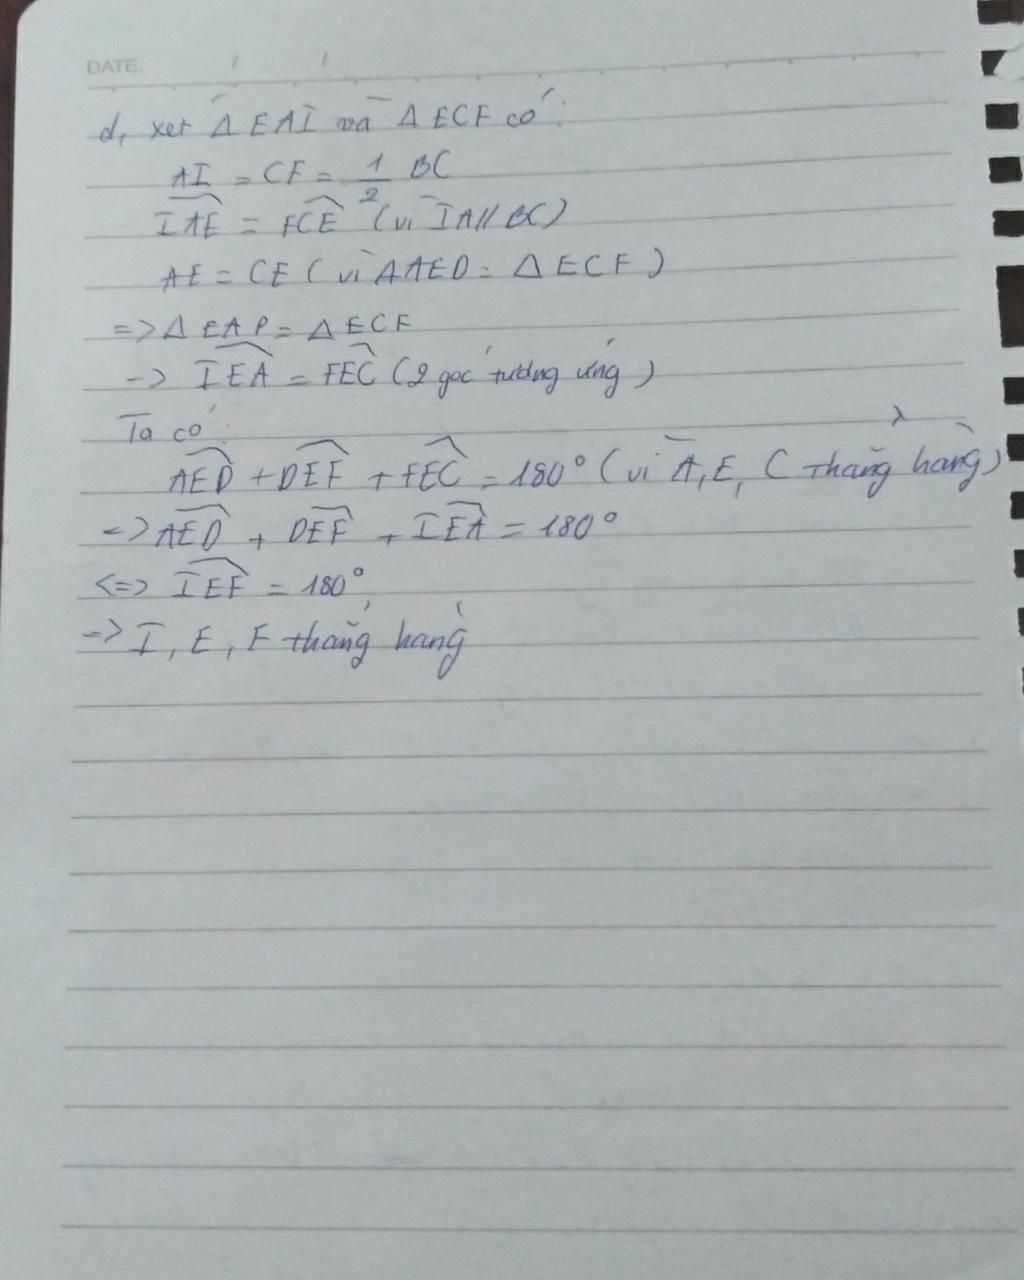 DATE. / /
d, xét Δ EAI và Δ ECF có:
AI = CF = 1/2 BC
IAE = FCE (vì IA // BC)
AE = CE (vì ΔAED = Δ ECF)
=> Δ EAP = Δ ECF
-> IEA = FEC (2 góc tương ứng)
Ta có:
AED + DEF + FEC = 180° (vì A, E, C thẳng hàng)
=> AED + DEF + IEA = 180°
<=> IEF = 180°
=> I, E, F thẳng hàng